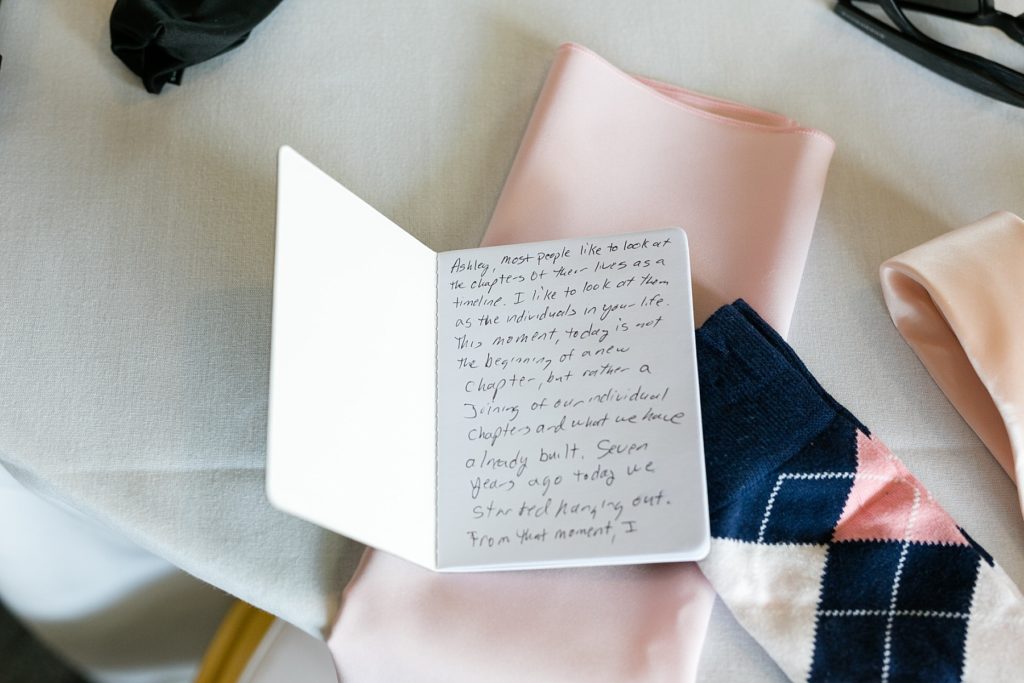 Ashley, most people like to look at
the chapters of their lives as a
timeline. I like to look at them
as the individuals in your life.
This moment, today is not
the beginning of a new
chapter, but rather a
Joining of our individual
chapters and what we have
already built. Seven
years ago today we
started hanging out.
From that moment, I